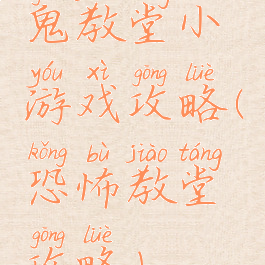 鬼教堂小
yóu xì gōng lüè
游戏攻略(
kǒng bù jiào táng
恐怖教堂
gōng lüè
攻略)